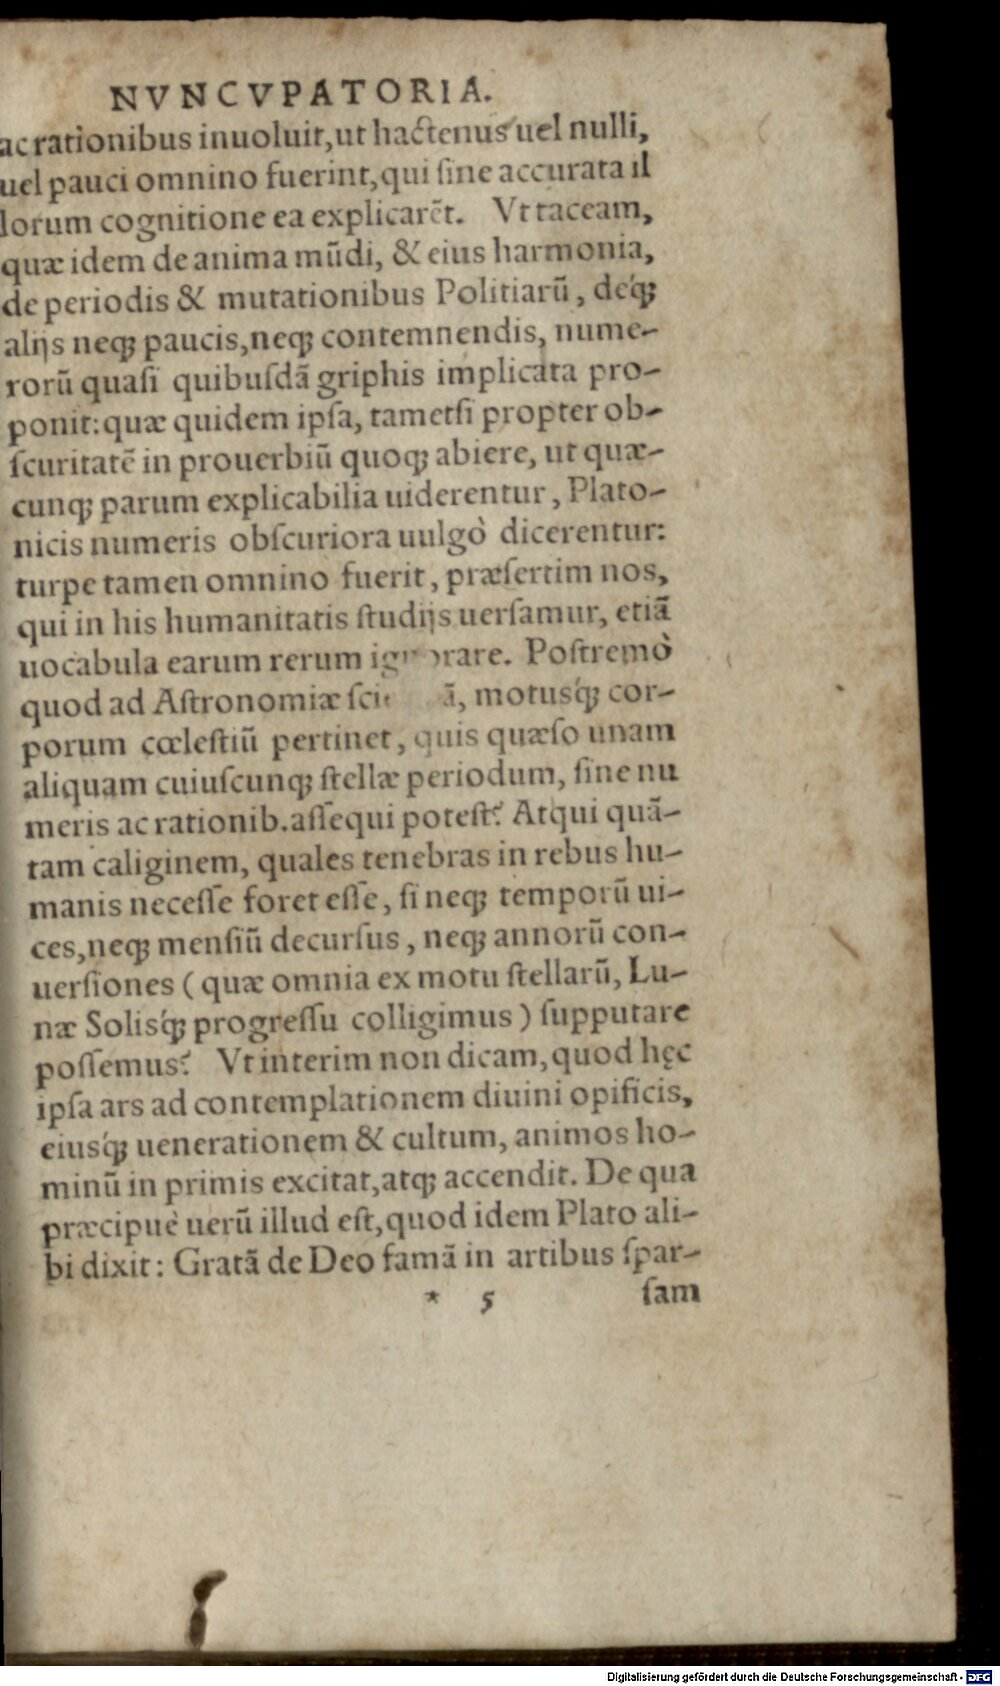 NVNCVPATORIA.
ac rationibus inuoluit, ut hactenus uel nulli,
uel pauci omnino fuerint, qui sine accurata il
lorum cognitione ea explicarēt. Vt taceam,
quæ idem de anima mūdi, & eius harmonia,
de periodis & mutationibus Politiarū, deq́;
alijs neq; paucis, neq; contemnendis, nume-
rorū quasi quibusdā griphis implicata pro-
ponit: quæ quidem ipsa, tametsi propter ob-
scuritatē in prouerbiū quoq; abiere, ut quæ-
cunq; parum explicabilia uiderentur, Plato-
nicis numeris obscuriora uulgò dicerentur:
turpe tamen omnino fuerit, præsertim nos,
qui in his humanitatis studijs uersamur, etiā
uocabula earum rerum ignorare. Postremò
quod ad Astronomiæ motusq́; cor-
porum cœlestiū pertinet, quis quæso unam
aliquam cuiuscunq; stellæ periodum, sine nu
meris ac rationib. assequi potest? Atqui quā-
tam caliginem, quales tenebras in rebus hu-
manis necesse foret esse, si neq; temporū ui-
ces, neq; mensiū decursus, neq; annorū con-
uersiones (quæ omnia ex motu stellarū, Lu-
næ Solisq́; progressu colligimus) supputare
possemus? Vt interim non dicam, quod hęc
ipsa ars ad contemplationem diuini opificis,
eiusq́; uenerationem & cultum, animos ho-
minū in primis excitat, atq; accendit. De qua
præcipuè uerū illud est, quod idem Plato ali-
bi dixit: Gratā de Deo famā in artibus spar-
* 5 sam
Digitalisierung gefördert durch die Deutsche Forschungsgemeinschaft - DFG